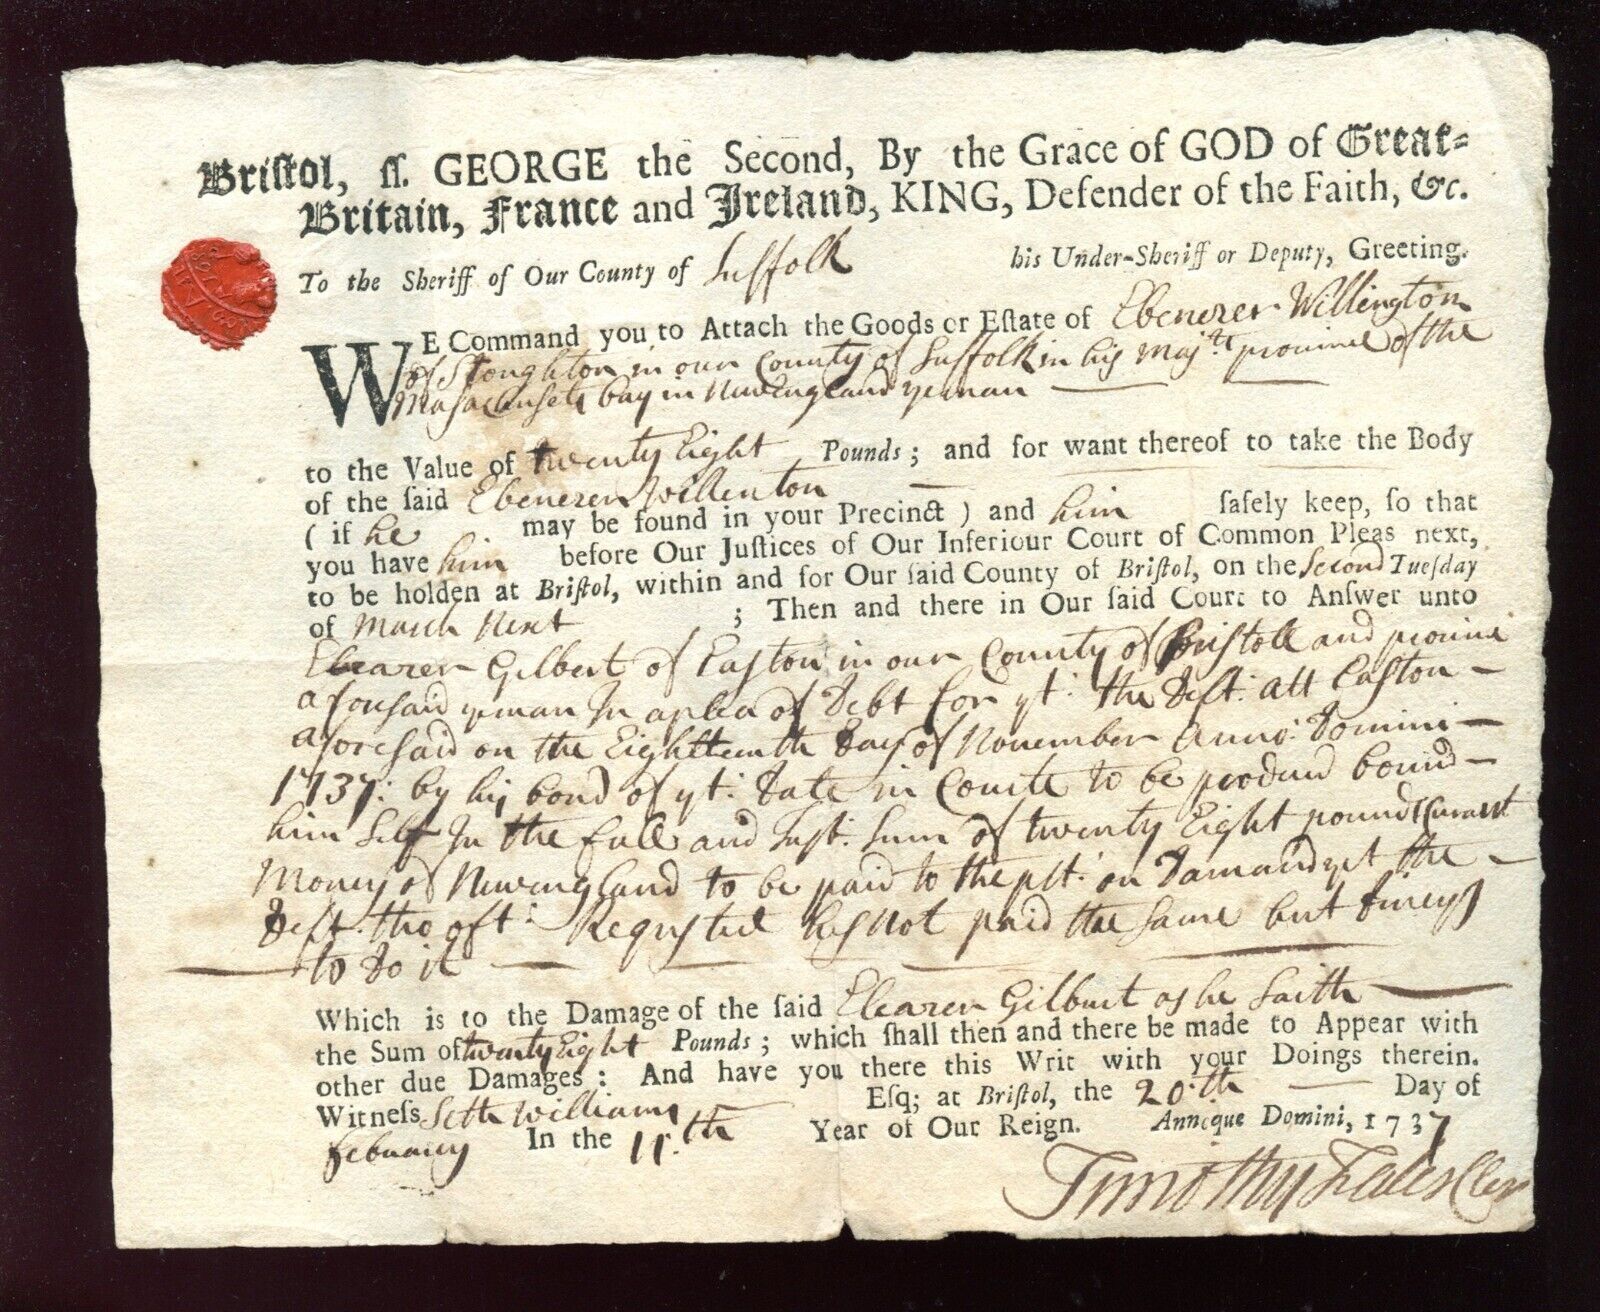 Briſtol, ſſ. GEORGE the Second, By the Grace of GOD of Great-
Britain, France and Ireland, KING, Defender of the Faith, &c.
To the Sheriff of Our County of Suffolk his Under-Sheriff or Deputy, Greeting.
WE Command you to Attach the Goods or Eſtate of Ebenezer Willington
of Stoughton in our County of Suffolk in his Majte province of the
Masachusets bay in Newengland yeman
to the Value of twenty Eight Pounds; and for want thereof to take the Body
of the ſaid Ebenezer Willenton
( if he may be found in your Precinct ) and him ſafely keep, ſo that
you have him before Our Juſtices of Our Inferiour Court of Common Pleas next,
to be holden at Briſtol, within and for Our ſaid County of Briſtol, on the Second Tueſday
of March Next ; Then and there in Our ſaid Court to Anſwer unto
Eleazer Gilbert of Easton in our County of Bristoll and province
aforesaid yeman In a plea of Debt for yt: the Deft: att Easton
aforesaid on the Eighteenth Day of November Anno: Domini
1737: by his bond of yt: Date in Courte to be produced bound
him Self In the full and Just: Sum of twenty Eight pounds Curant
Money of Newengland to be paid to the plt: on Damand yet the
Deft: tho oft: Requsted has not paid the Same but
to Do it
Which is to the Damage of the ſaid Eleazer Gilburt as he Saith
the Sum of twenty Eight Pounds; which ſhall then and there be made to Appear with
other due Damages: And have you there this Writ with your Doings therein.
Witneſs Seth Williams Eſq; at Briſtol, the 20:th Day of
February In the 11:th Year of Our Reign. Anneque Domini, 1737
Timothy Fales Cler